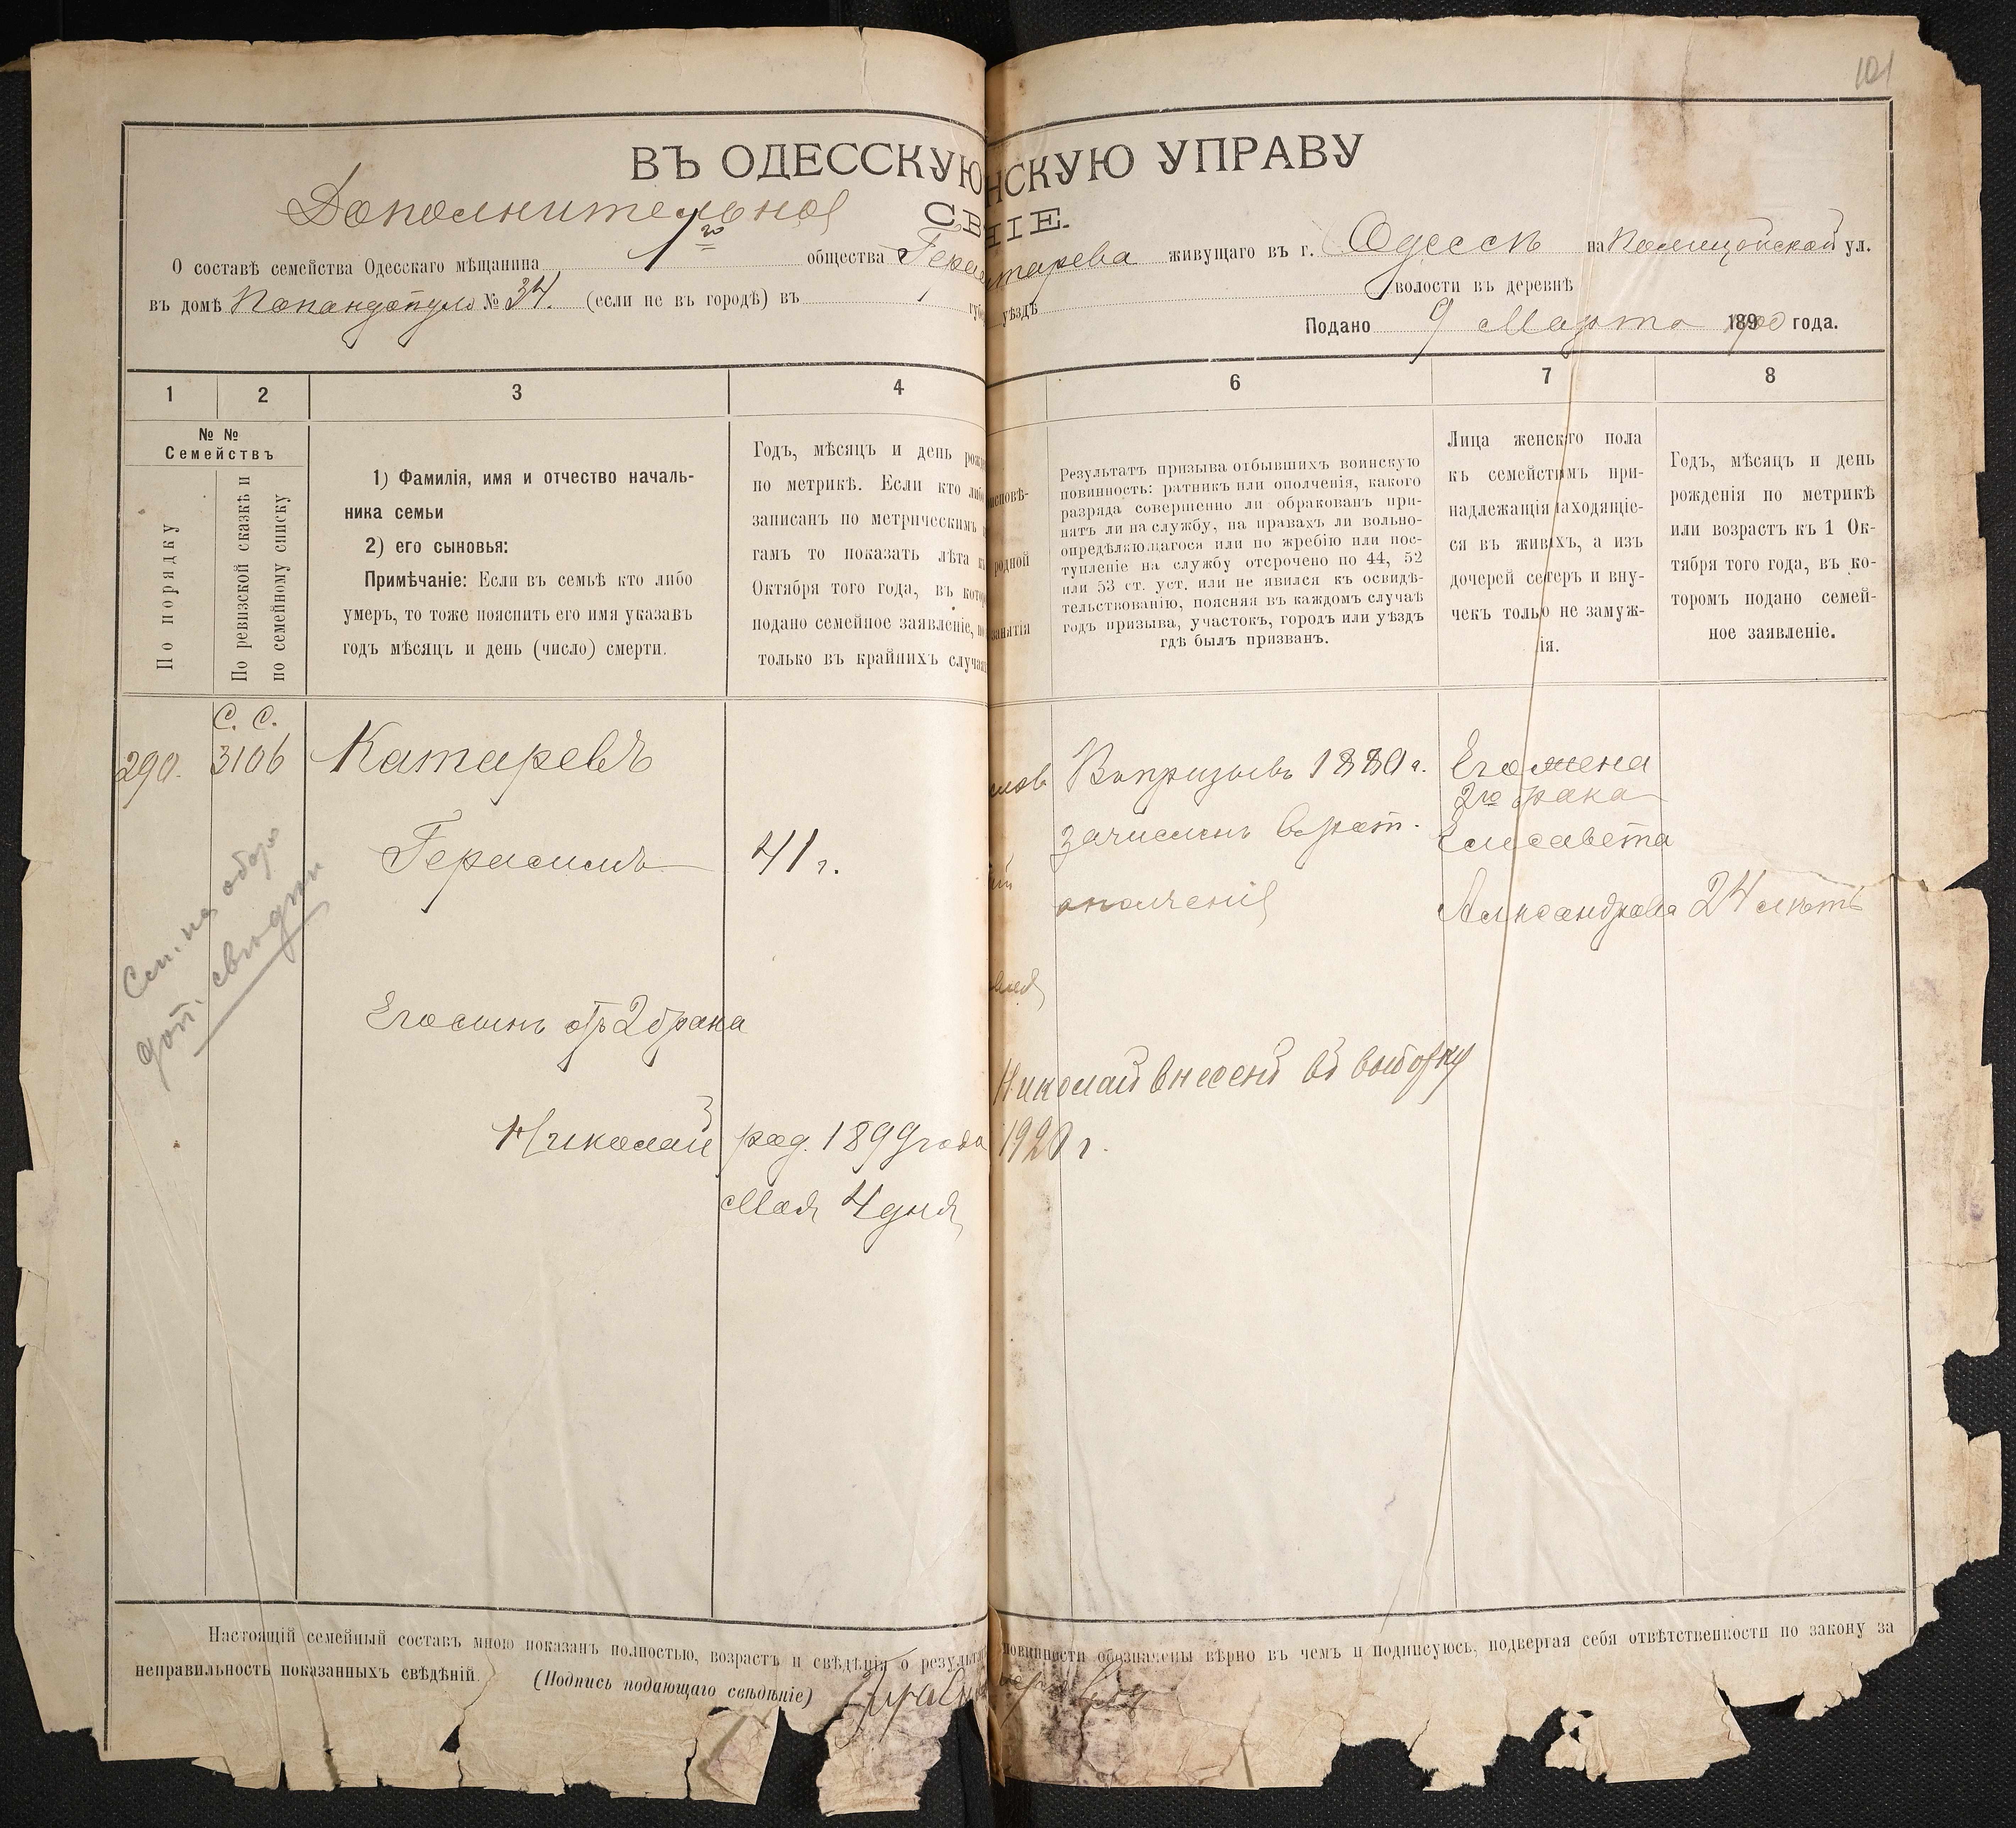 101
ВЪ ОДЕССКУЮ НСКУЮ УПРАВУ
Дополнительное
СВ НІЕ.
О составѣ семейства Одесскаго мѣщанина 1го общества Гера тарева живущаго въ г. Одессѣ на Полицейской ул.
въ домѣ Попандопуло № 34. (если не въ городѣ) въ губ уѣздѣ волости въ деревнѣ
Подано 9 Марта 1900 года.
1 2 3 4 6 7 8
№ №
Семействъ
По порядку
По ревизской сказкѣ и
по семейному списку
1) Фамилія, имя и отчество началь-
ника семьи
2) его сыновья:
Примѣчаніе: Если въ семьѣ кто либо
умеръ, то тоже пояснить его имя указавъ
годъ мѣсяцъ и день (число) смерти.
Годъ, мѣсяцъ и день рожд
по метрикѣ. Если кто либо
записанъ по метрическимъ
гамъ то показать лѣта къ
Октября того года, въ кото
подано семейное заявленіе, но
только въ крайнихъ случая
исповѣ-
родной
занятія
Результатъ призыва отбывшихъ воинскую
повинность: ратникъ или ополченія, какого
разряда совершенно ли обракованъ при-
нятъ ли на службу, на правахъ ли вольно-
опредѣляющагося или по жребію или пос-
тупленіе на службу отсрочено по 44, 52
или 53 ст. уст. или не явился къ освидѣ-
тельствованію, поясняя въ каждомъ случаѣ
годъ призыва, участокъ, городъ или уѣздъ
гдѣ былъ призванъ.
Лица женскаго пола
къ семействамъ при-
надлежащія находящіе-
ся въ живыхъ, а изъ
дочерей сестеръ и вну-
чекъ только не замуж-
нія.
Годъ, мѣсяцъ и день
рожденія по метрикѣ
или возрастъ къ 1 Ок-
тября того года, въ ко-
торомъ подано семей-
ное заявленіе.
С. С.
290. 3106 Катаревъ
Герасимъ 41 г.
Въ призывъ 1880 г.
зачисленъ въ рат.
ополченія
Его жена
2го брака
Елисавета
Александрова 24 лѣтъ
См. на обор.
доп. свѣдѣн
Его сынъ отъ 2 брака
Николай род. 1899 года
Мая 4 дня
Николай внесенъ въ выборку
1920 г.
Настоящій семейный составъ мною показанъ полностью, возрастъ и свѣдѣнія о результа повинности обозначены вѣрно въ чемъ и подписуюсь, подвергая себя отвѣтственности по закону за
неправильность показанныхъ свѣдѣній. (Подпись подающаго свѣдѣніе)